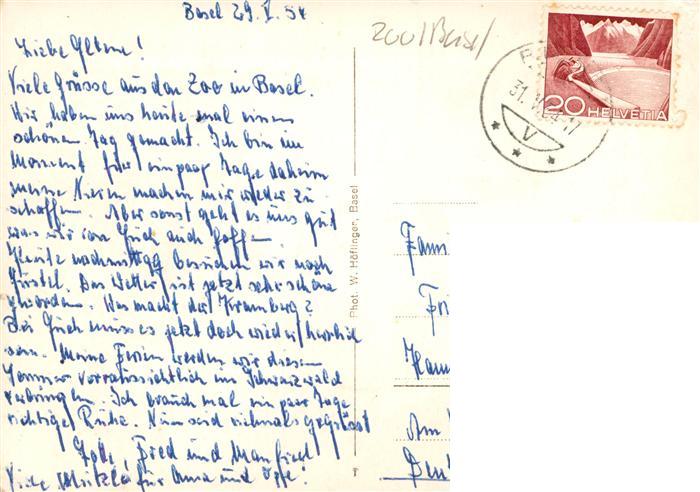 Basel 29.V.54
Zoo/Basel
Liebe Eltern!
Viele Grüsse aus dem Zoo in Basel.
Wir haben uns heute mal einen
schönen Tag gemacht. Ich bin im
Moment für ein paar Tage daheim
meine Nieren machen mir wieder zu
schaffen. Aber sonst geht es uns gut
was wir von Euch auch hoffen.
Heute nachmittag besuchen wir noch
. Das Wetter ist jetzt sehr schön
geworden. Was macht der Kramberg?
Bei Euch muss es jetzt doch wieder herrlich
sein. Meine Ferien werden wir diesen
Sommer voraussichtlich im Schwarzwald
verbringen. Ich brauch mal ein paar Tage
richtige Ruhe. Nun seid vielmals gegrüsst
Fred und Manfred
Viele für Anna und Opa!
Phot. W. Höflinger, Basel
31.V.54-17
V
20 HELVETIA
Fam
Fri
Am